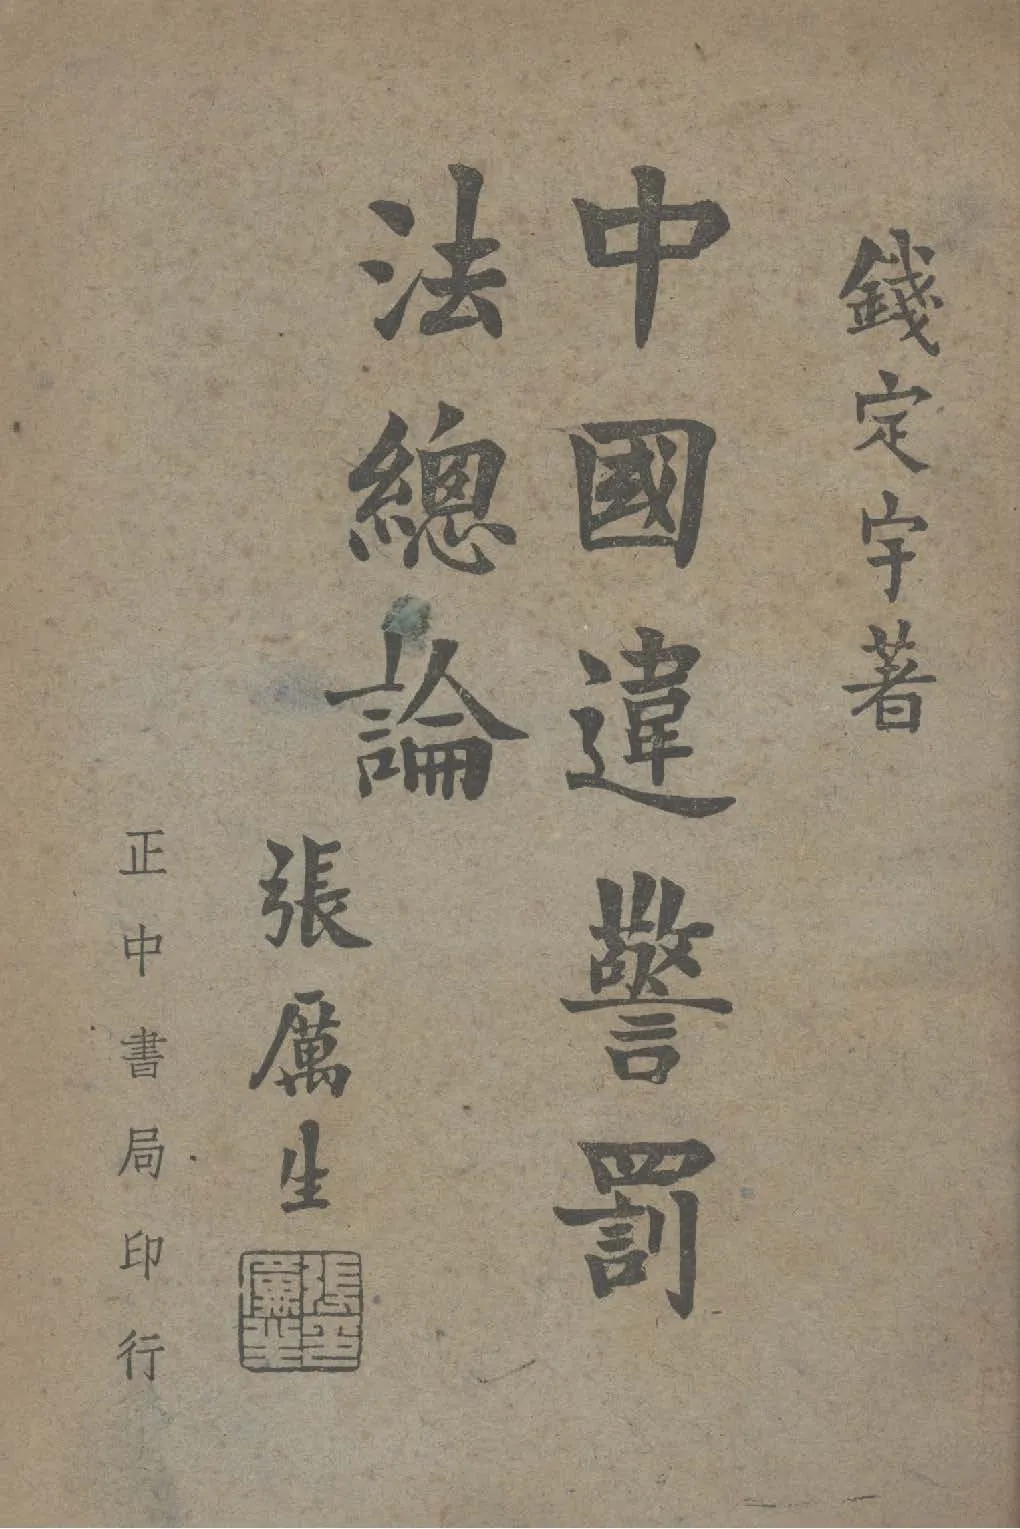 錢定宇著
中國違警罰
法總論
張厲生
張厲生章
正中書局印行